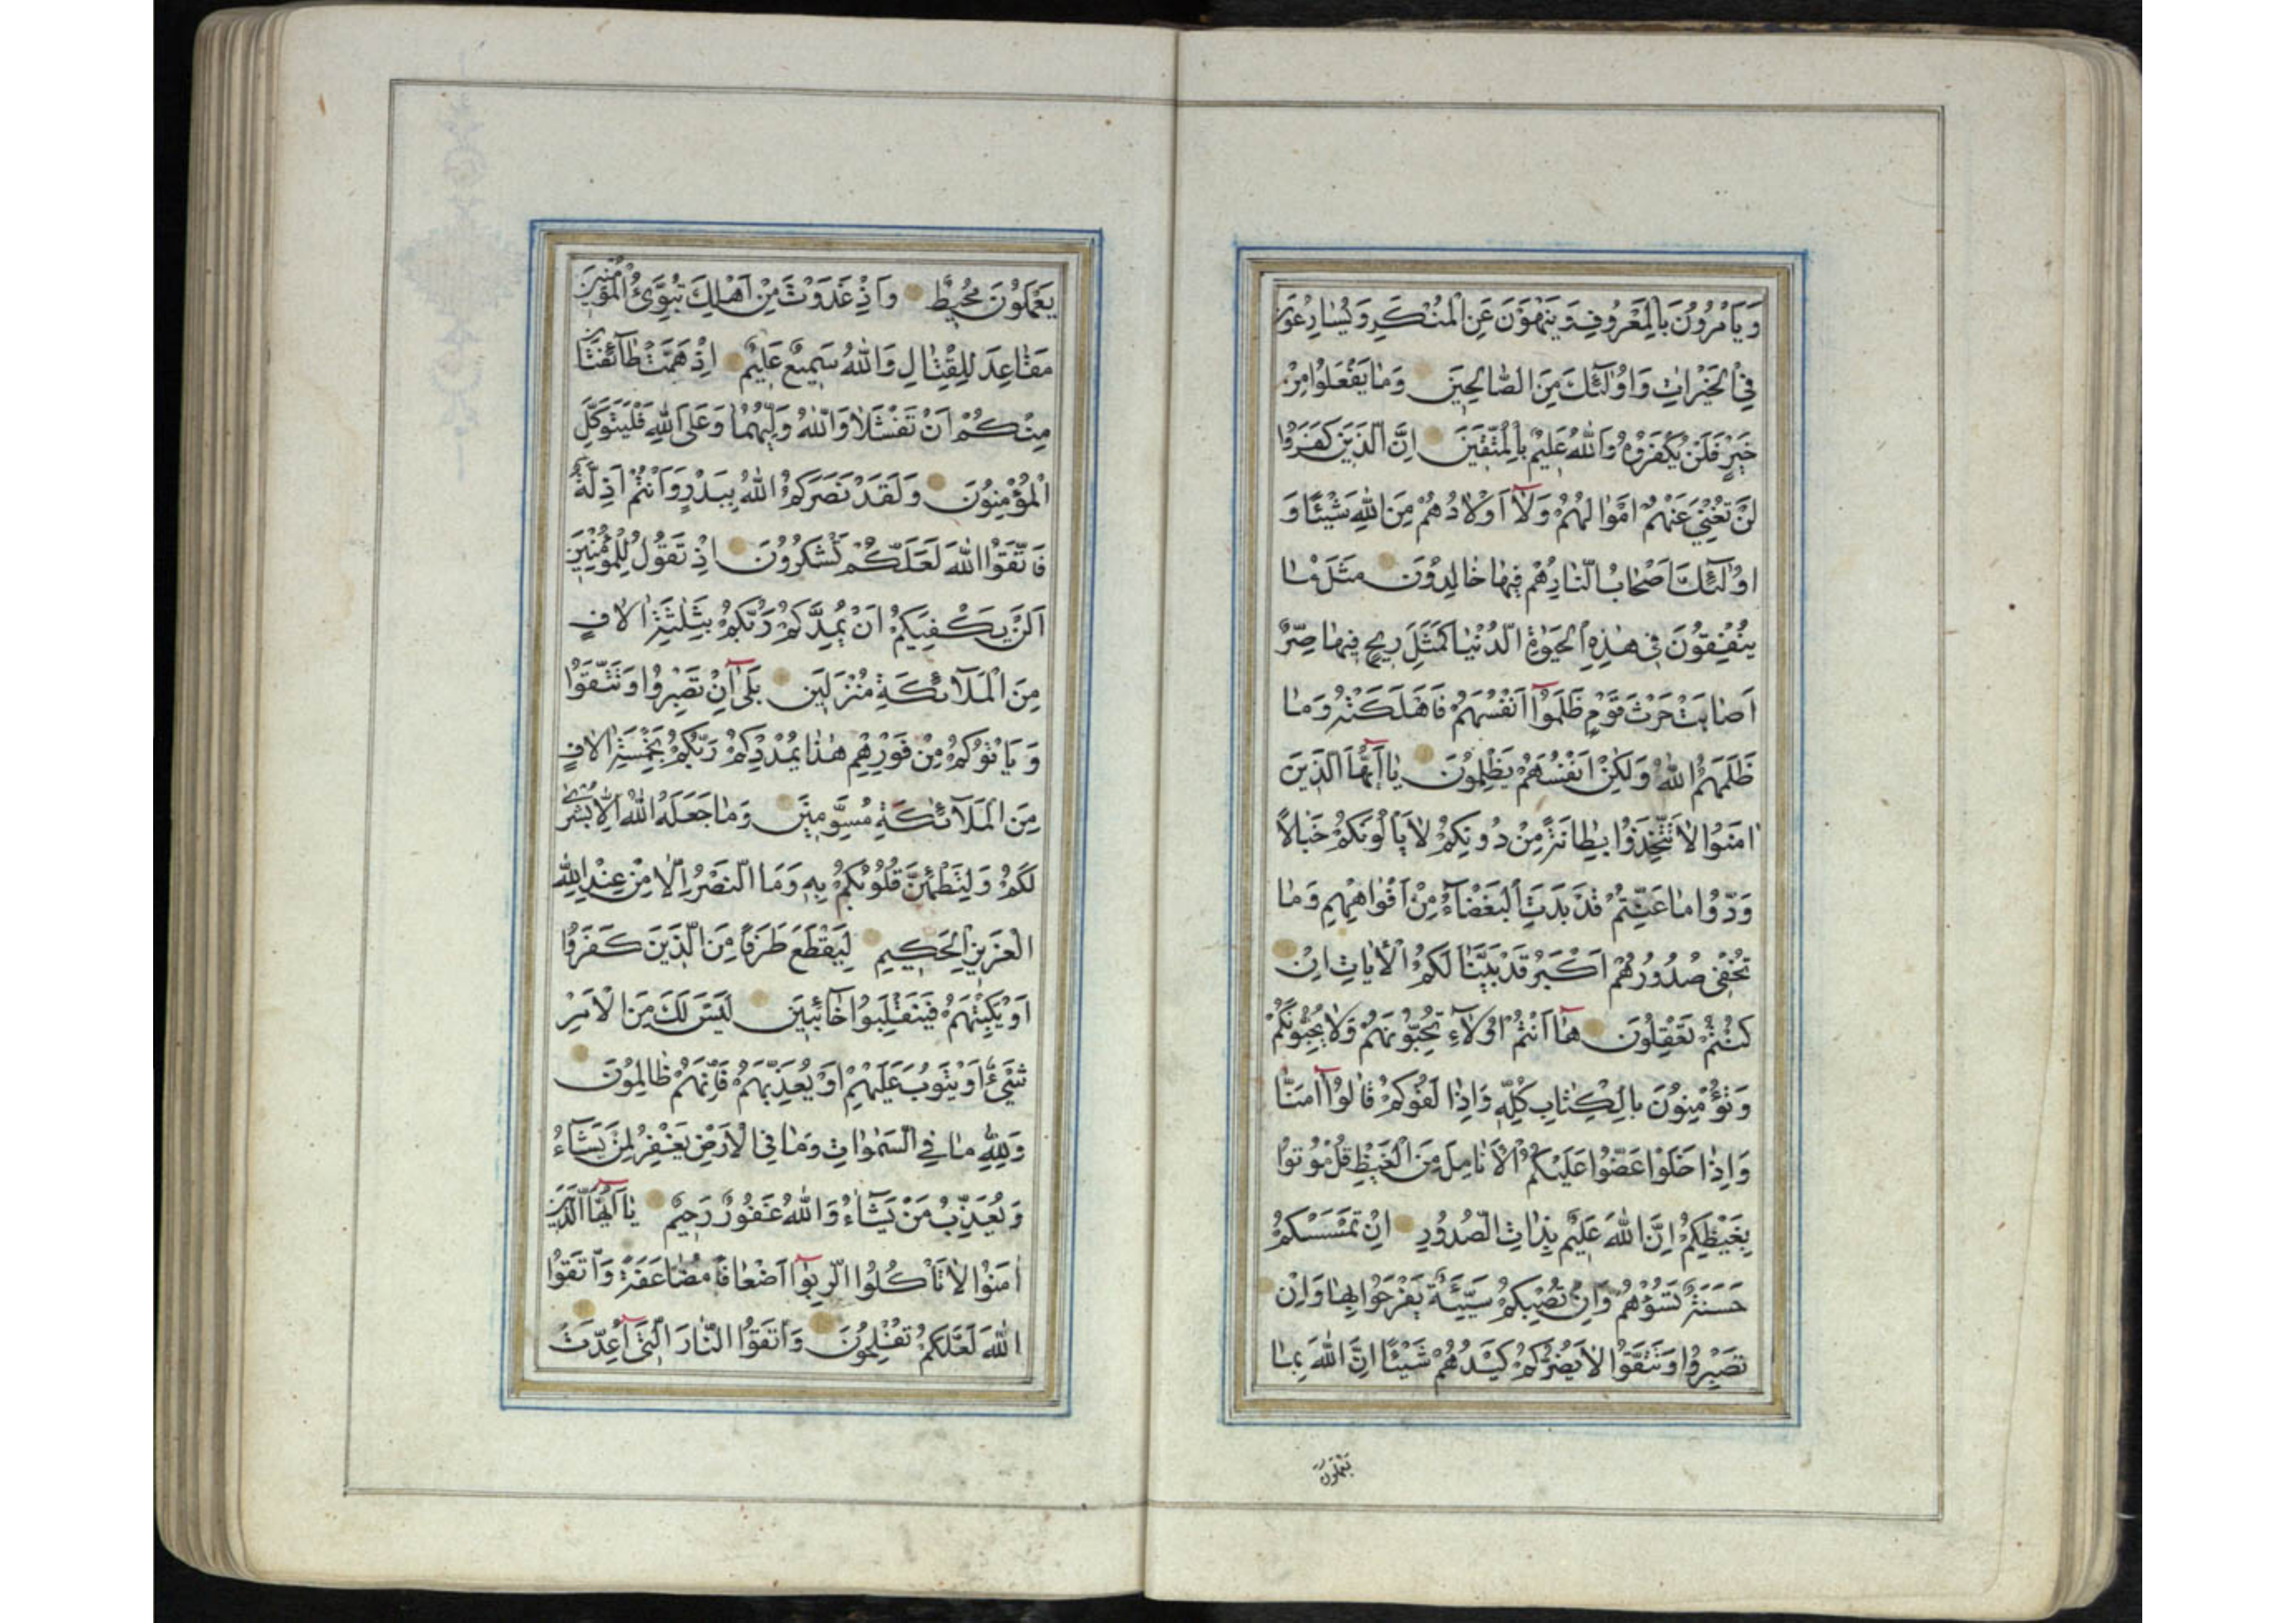 وَيَأْمُرُونَ بِالْمَعْرُوفِ وَيَنْهَوْنَ عَنِ الْمُنْكَرِ وَيُسَارِعُونَ
فِي الْخَيْرَاتِ وَاُولٰٓئِكَ مِنَ الصَّالِحِينَ وَمَا يَفْعَلُوا مِنْ
خَيْرٍ فَلَنْ يُكْفَرُوهُ وَاللّٰهُ عَلِيمٌ بِالْمُتَّقِينَ اِنَّ الَّذِينَ كَفَرُوا
لَنْ تُغْنِيَ عَنْهُمْ اَمْوَالُهُمْ وَلَآ اَوْلَادُهُمْ مِنَ اللّٰهِ شَيْئًا وَ
اُولٰٓئِكَ اَصْحَابُ النَّارِ هُمْ فِيهَا خَالِدُونَ مَثَلُ مَا
يُنْفِقُونَ فِي هٰذِهِ الْحَيٰوةِ الدُّنْيَا كَمَثَلِ رِيحٍ فِيهَا صِرٌّ
اَصَابَتْ حَرْثَ قَوْمٍ ظَلَمُوٓا اَنْفُسَهُمْ فَاَهْلَكَتْهُ وَمَا
ظَلَمَهُمُ اللّٰهُ وَلٰكِنْ اَنْفُسَهُمْ يَظْلِمُونَ يَآ اَيُّهَا الَّذِينَ
اٰمَنُوا لَا تَتَّخِذُوا بِطَانَةً مِنْ دُونِكُمْ لَا يَأْلُونَكُمْ خَبَالًا
وَدُّوا مَا عَنِتُّمْ قَدْ بَدَتِ الْبَغْضَآءُ مِنْ اَفْوَاهِهِمْ وَمَا
تُخْفِي صُدُورُهُمْ اَكْبَرُ قَدْ بَيَّنَّا لَكُمُ الْاٰيَاتِ اِنْ
كُنْتُمْ تَعْقِلُونَ هَآ اَنْتُمْ اُولَآءِ تُحِبُّونَهُمْ وَلَا يُحِبُّونَكُمْ
وَتُؤْمِنُونَ بِالْكِتَابِ كُلِّهِ وَاِذَا لَقُوكُمْ قَالُوٓا اٰمَنَّا
وَاِذَا خَلَوْا عَضُّوا عَلَيْكُمُ الْاَنَامِلَ مِنَ الْغَيْظِ قُلْ مُوتُوا
بِغَيْظِكُمْ اِنَّ اللّٰهَ عَلِيمٌ بِذَاتِ الصُّدُورِ اِنْ تَمْسَسْكُمْ
حَسَنَةٌ تَسُؤْهُمْ وَاِنْ تُصِبْكُمْ سَيِّئَةٌ يَفْرَحُوا بِهَا وَاِنْ
تَصْبِرُوا وَتَتَّقُوا لَا يَضُرُّكُمْ كَيْدُهُمْ شَيْئًا اِنَّ اللّٰهَ بِمَا
يَعْمَلُونَ
يَعْمَلُونَ مُحِيطٌ وَاِذْ غَدَوْتَ مِنْ اَهْلِكَ تُبَوِّئُ الْمُؤْمِنِينَ
مَقَاعِدَ لِلْقِتَالِ وَاللّٰهُ سَمِيعٌ عَلِيمٌ اِذْ هَمَّتْ طَآئِفَتَانِ
مِنْكُمْ اَنْ تَفْشَلَا وَاللّٰهُ وَلِيُّهُمَا وَعَلَى اللّٰهِ فَلْيَتَوَكَّلِ
الْمُؤْمِنُونَ وَلَقَدْ نَصَرَكُمُ اللّٰهُ بِبَدْرٍ وَاَنْتُمْ اَذِلَّةٌ
فَاتَّقُوا اللّٰهَ لَعَلَّكُمْ تَشْكُرُونَ اِذْ تَقُولُ لِلْمُؤْمِنِينَ
اَلَنْ يَكْفِيَكُمْ اَنْ يُمِدَّكُمْ رَبُّكُمْ بِثَلٰثَةِ اٰلَافٍ
مِنَ الْمَلَآئِكَةِ مُنْزَلِينَ بَلٰٓى اِنْ تَصْبِرُوا وَتَتَّقُوا
وَيَأْتُوكُمْ مِنْ فَوْرِهِمْ هٰذَا يُمْدِدْكُمْ رَبُّكُمْ بِخَمْسَةِ اٰلَافٍ
مِنَ الْمَلَآئِكَةِ مُسَوِّمِينَ وَمَا جَعَلَهُ اللّٰهُ اِلَّا بُشْرٰى
لَكُمْ وَلِتَطْمَئِنَّ قُلُوبُكُمْ بِهِ وَمَا النَّصْرُ اِلَّا مِنْ عِنْدِ اللّٰهِ
الْعَزِيزِ الْحَكِيمِ لِيَقْطَعَ طَرَفًا مِنَ الَّذِينَ كَفَرُوا
اَوْ يَكْبِتَهُمْ فَيَنْقَلِبُوا خَآئِبِينَ لَيْسَ لَكَ مِنَ الْاَمْرِ
شَيْءٌ اَوْ يَتُوبَ عَلَيْهِمْ اَوْ يُعَذِّبَهُمْ فَاِنَّهُمْ ظَالِمُونَ
وَلِلّٰهِ مَا فِي السَّمٰوَاتِ وَمَا فِي الْاَرْضِ يَغْفِرُ لِمَنْ يَشَآءُ
وَيُعَذِّبُ مَنْ يَشَآءُ وَاللّٰهُ غَفُورٌ رَحِيمٌ يَآ اَيُّهَا الَّذِينَ
اٰمَنُوا لَا تَأْكُلُوا الرِّبٰوٓا اَضْعَافًا مُضَاعَفَةً وَاتَّقُوا
اللّٰهَ لَعَلَّكُمْ تُفْلِحُونَ وَاتَّقُوا النَّارَ الَّتِيٓ اُعِدَّتْ